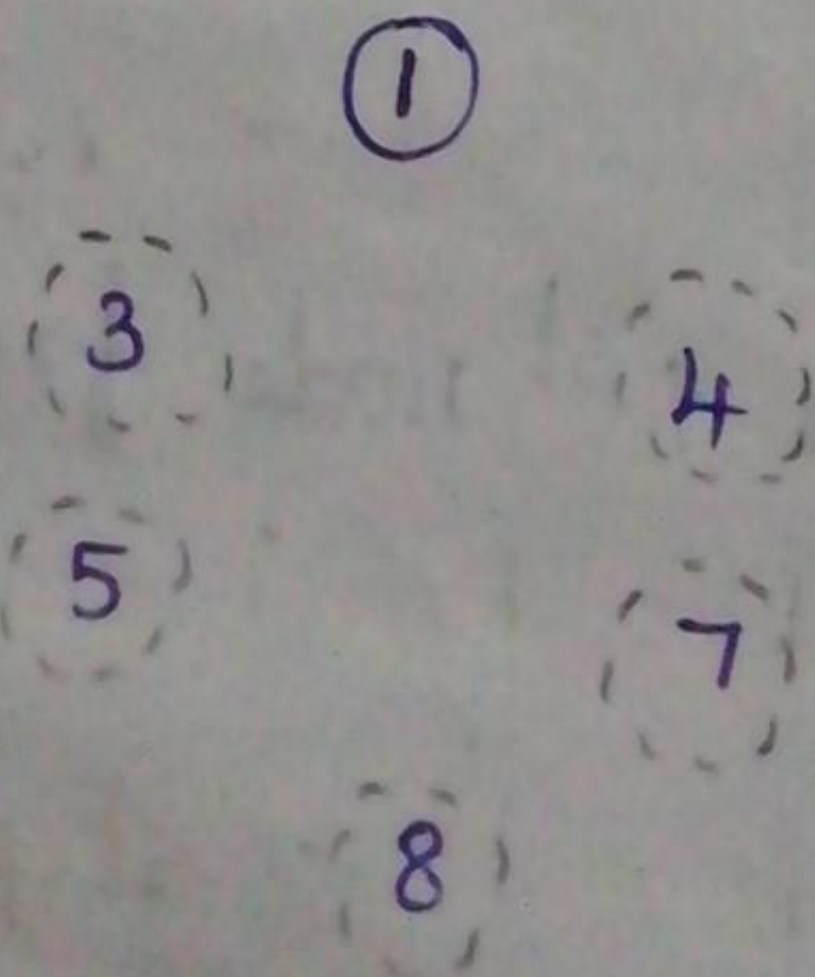 1
3
4
5
7
8